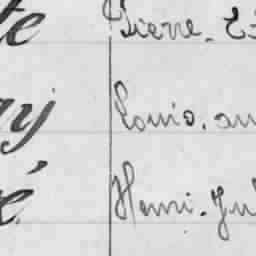 te Pierre. E
ay Louis. an
é Henri. Ju